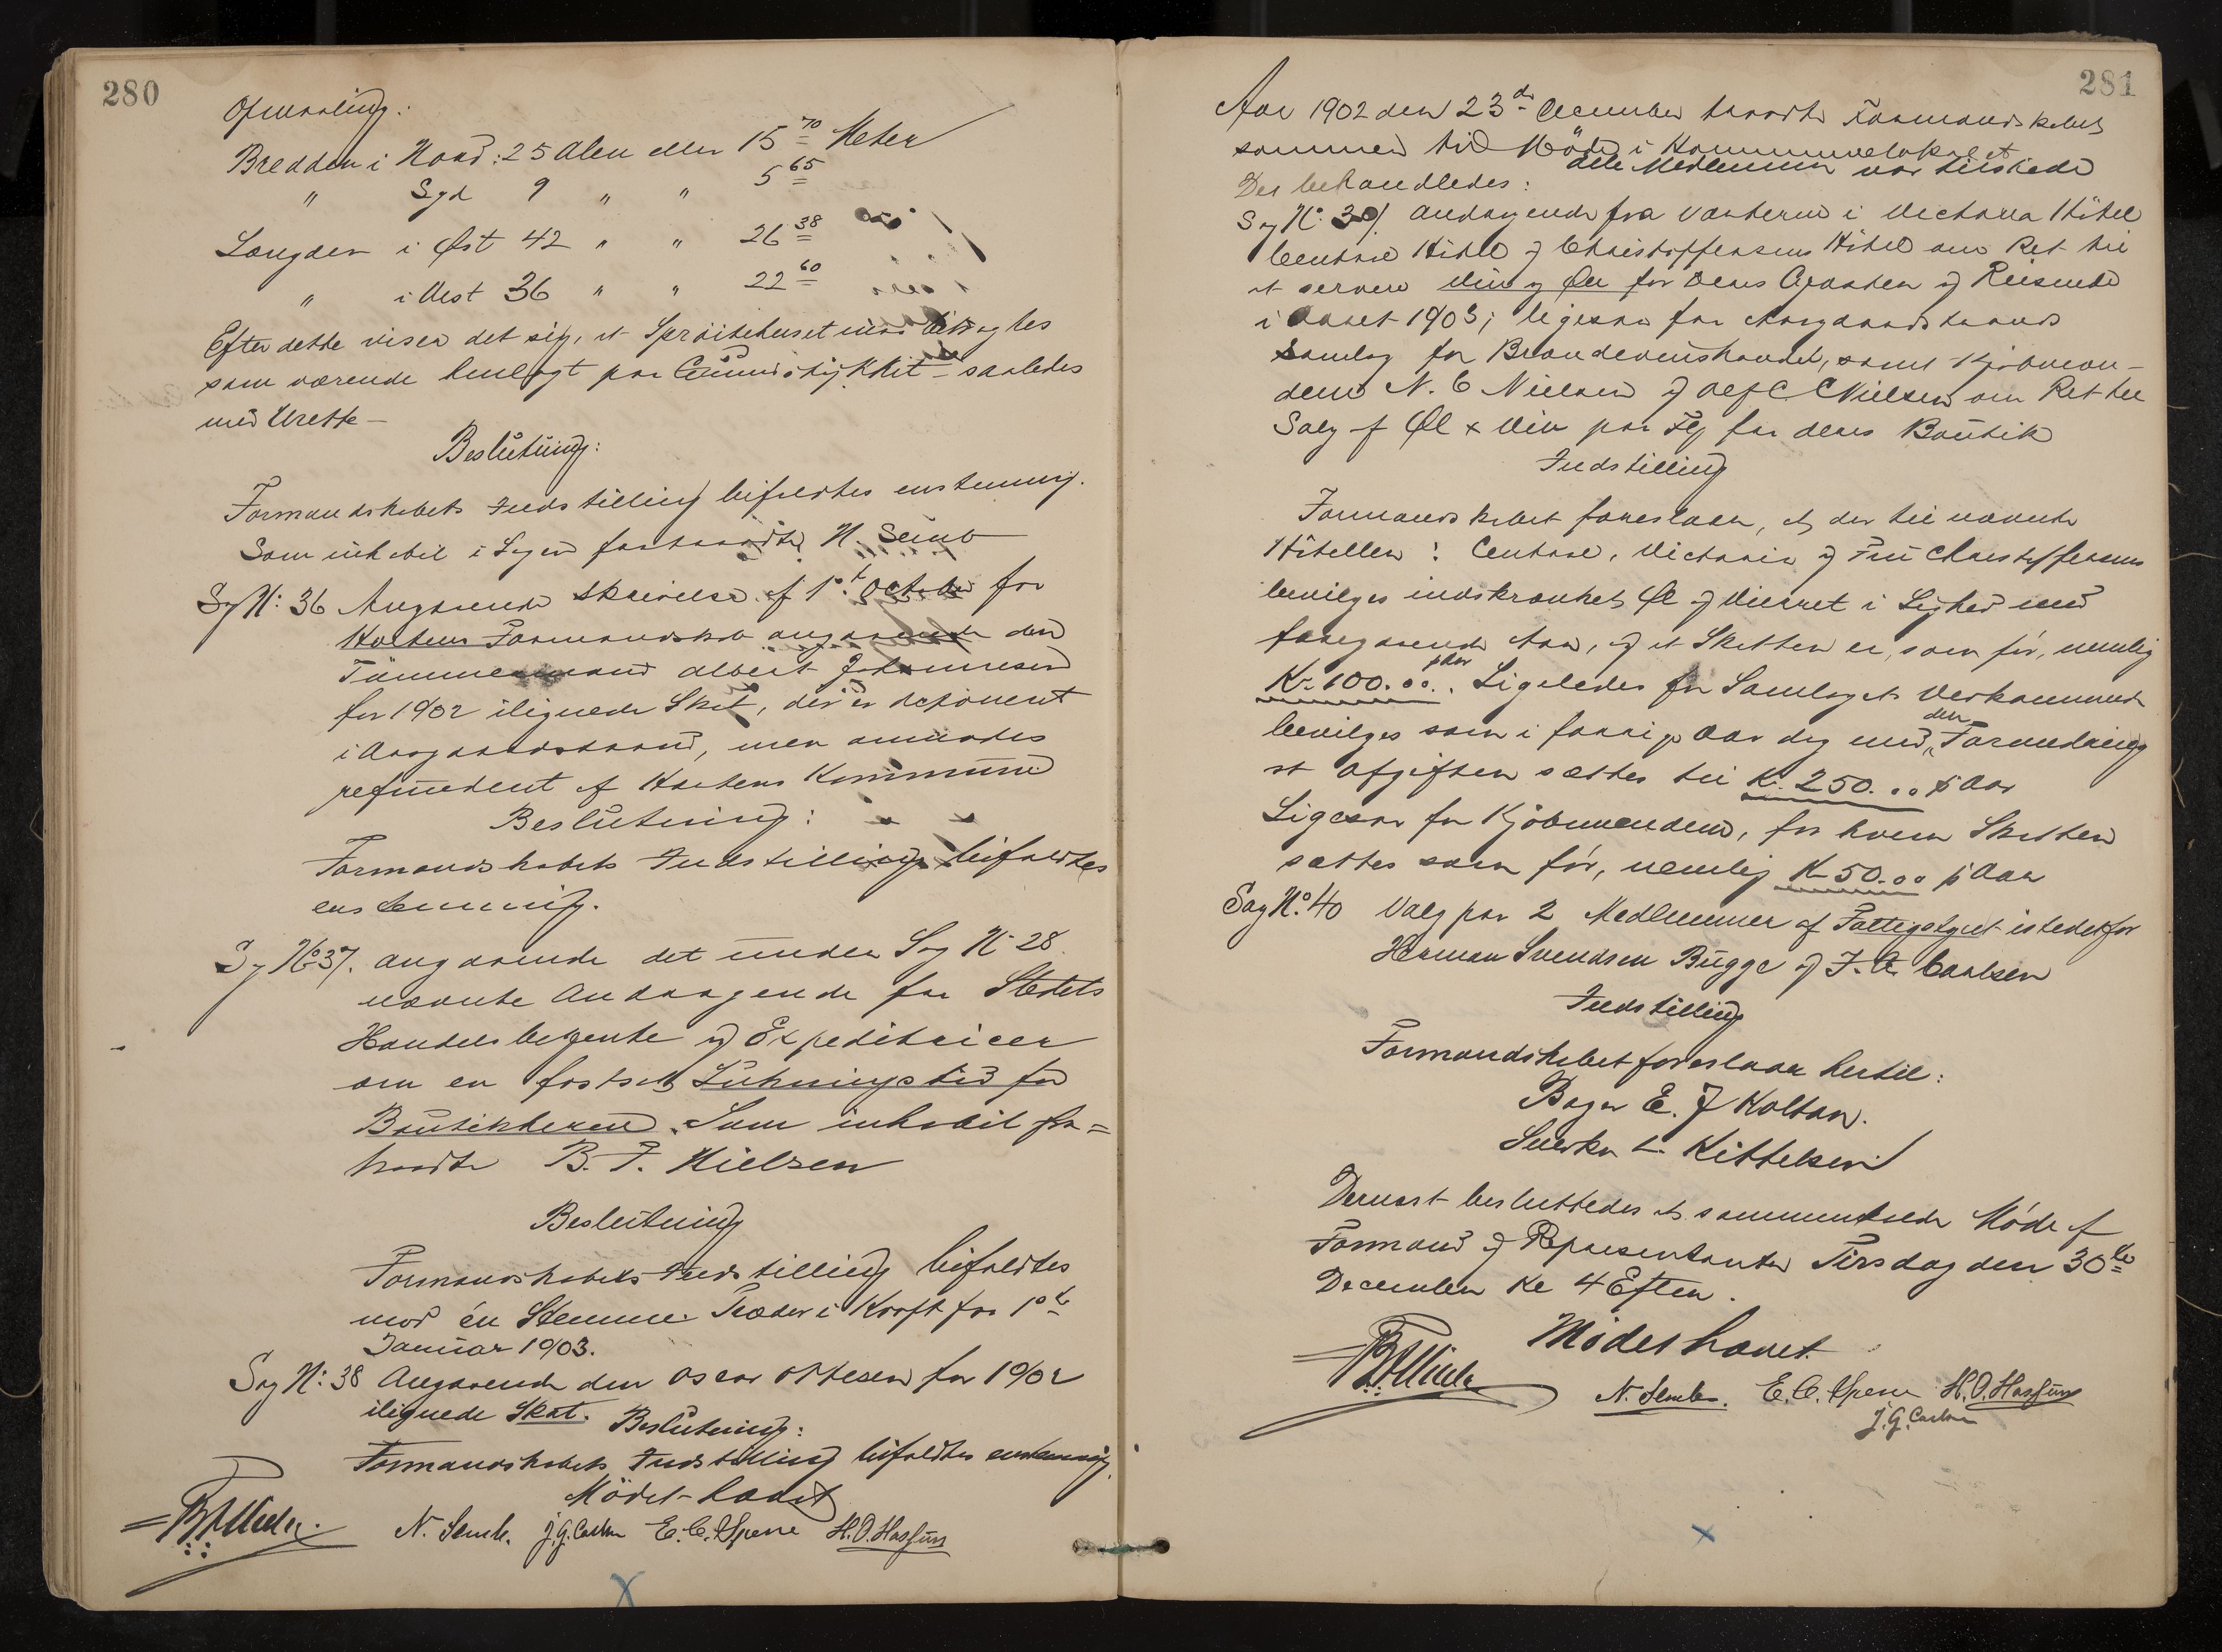 280
Opmaaling:
Bredden i Nord: 25 Alen eller 15 70 Meter
" Syd 9 " " 5 65
Længden i Øst 42 " " 26 38
" i Vest 36 " " 22 60
Efter dette viser det sig, at Sprøitehuset maa
som værende henlagt paa saaledes
med Urette –
Beslutning:
Formandskabets Indstilling bifaldtes enstemmig.
Som inhabil i Sagen fratraadte N. Semb
Sag No: 36 Angaaende Skrivelse af 1ste October fra
Holtens Formandskab angaaende den
Tømmermand Albert Johannesen
for 1902 ilignede Skat, der er deponeret
i Aasgaardstrand, men
refunderet af Kommune
Beslutning:
Formandskabets Indstilling bifaldtes
enstemmig.
Sag No 37. angaaende det under Sag No 28
nævnte Andragende fra Stedets
Handelsbetjente og Expeditricer
om en fastsat Lukningstid for
Boutikkerne. Som inhabil fra=
traadte B. F. Nielsen
Beslutning
Formandskabets Indstilling bifaldtes
mod én Stemme. Træder i Kraft fra 1ste
Januar 1903.
Sag No: 38 Angaaende den Oscar Ottesen for 1902
ilignede Skat. Beslutning:
Formandskabets Indstilling bifaldtes enstemmig.
Mödet hævet
N. Semb. J. G. Carlsen E. C. H. O.
281
Aar 1902 den 23de December traadte Formandskabet
sammen til Möde i Kommunelokalet
alle Medlemmer var tilstede
Der behandledes:
Sag No. 39. Andragende fra Værterne i Victoria Hôtel
Central Hôtel og Christoffersens Hôtel om Ret til
at servere Vin og Øl for deres Gjæster og Reisende
i Aaret 1903; ligesaa fra Aasgaardstrands
Samlag for Brændevinshandel, samt Kjöbmæn-
dene N. C Nielsen og C. Nielsen om Ret til
Salg af Øl & Vin paa Flg fra deres Boutik
Indstilling
Formandskabet foreslaar, at der til nævnte
Hôteller: Central, Victoria og Fru Christoffersens
bevilges indskrænket Øl og Vinret i Lighed med
foregaaende Aar, og at Skatten er, som för, nemlig
Kr. 100.00. Ligeledes for Samlagets Vedkommende
bevilges som i forrige Aar dog med den Forandring
at Afgiften sættes til Kr. 250.00 p Aar
Ligesaa for Kjöbmændene, for hvem Skatten
sættes som för, nemlig Kr 50.00 p Aar
Sag No. 40 Valg paa 2 Medlemmer af Fattigstyret istedetfor
Herman Svendsen Bugge og J. G. Carlsen
Indstilling
Formandskabet foreslaar hertil:
Bager E. J Holtan.
Snedker L. Kittelsen
Dernæst besluttedes et sammenkaldt Möde af
Formænd og Repræsentanter Tirsdag den 30te
December Kl 4 Efterm.
Mödet hævet
N. Semb. E. C. H. O.
J. G. Carlsen